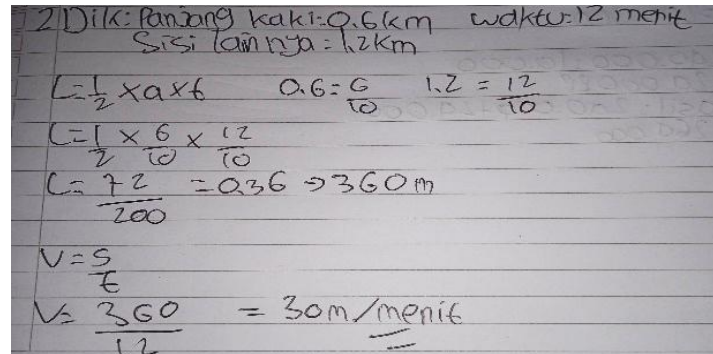 2) Dik: Panjang kaki: 0.6 km waktu: 12 menit
Sisi lainnya = 1,2 km
L = 1/2 x a x t 0.6 = 6/10 1.2 = 12/10
L = 1/2 x 6/10 x 12/10
L = 72/200 = 0,36 → 360 m
V = S/t
V = 360/12 = 30 m/menit